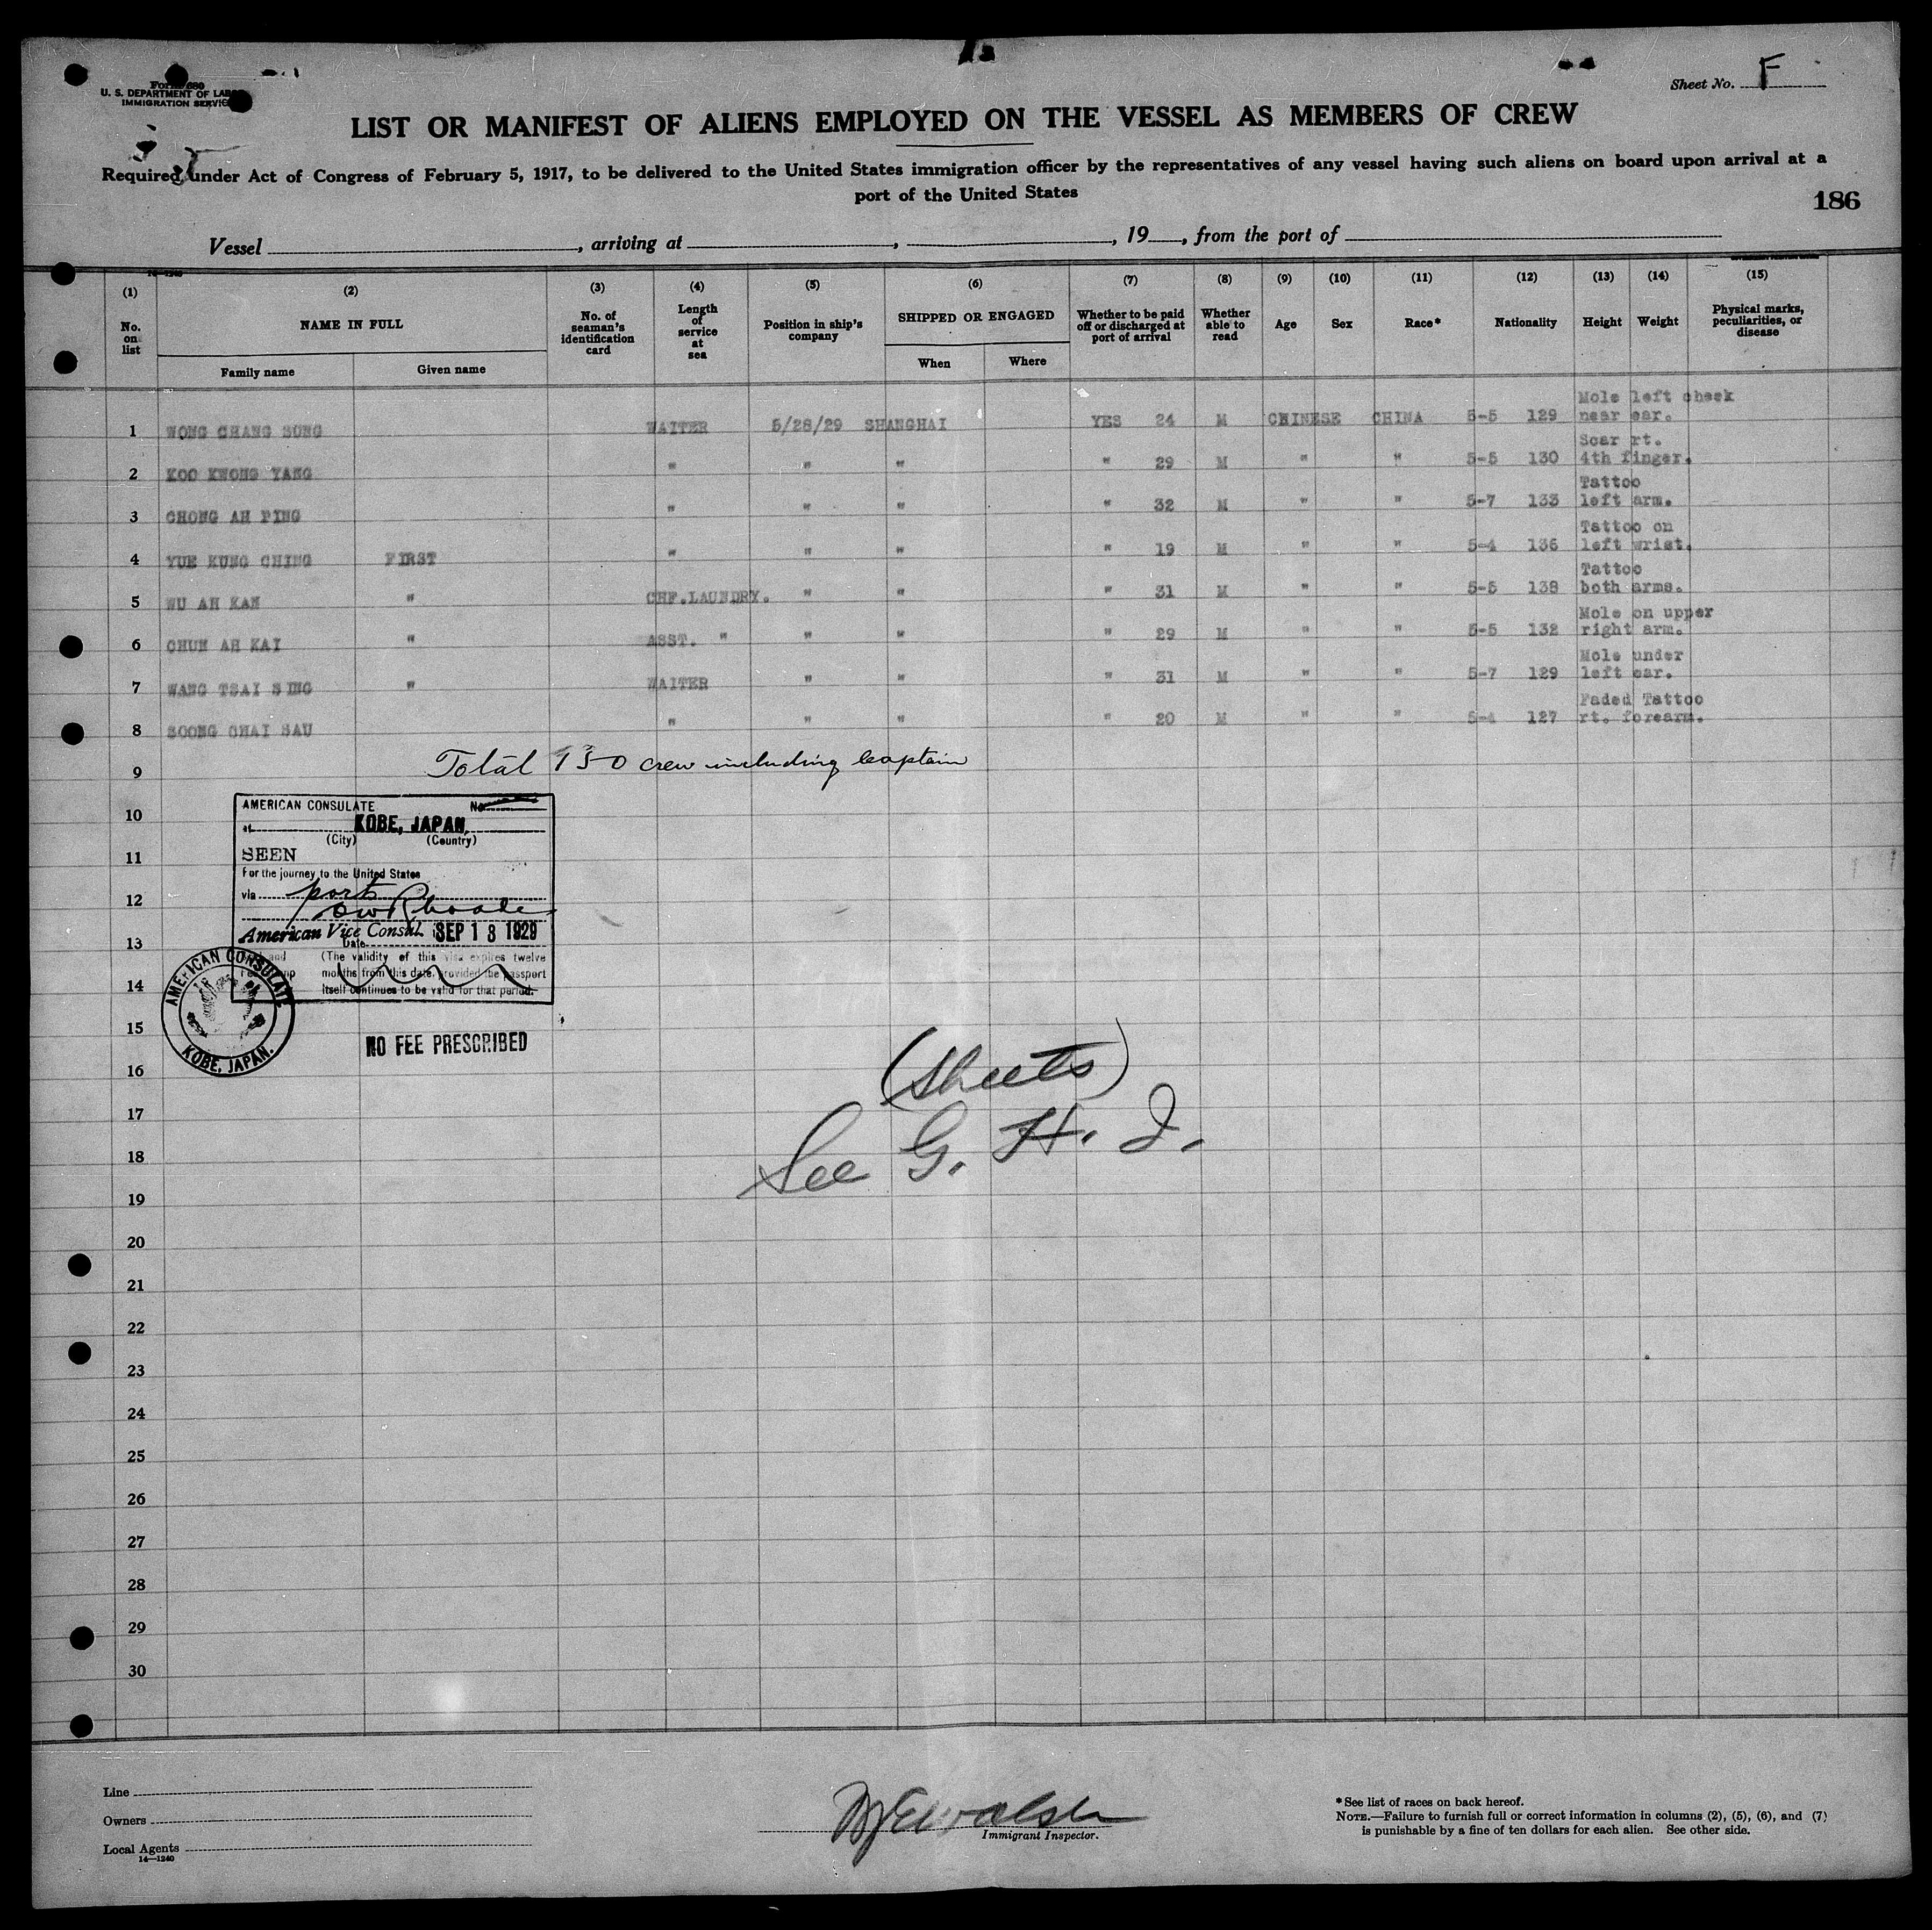 Form 680
U. S. DEPARTMENT OF LABOR
IMMIGRATION SERVICE
Sheet No. F
LIST OR MANIFEST OF ALIENS EMPLOYED ON THE VESSEL AS MEMBERS OF CREW
Required under Act of Congress of February 5, 1917, to be delivered to the United States immigration officer by the representatives of any vessel having such aliens on board upon arrival at a
port of the United States
186
Vessel , arriving at , , 19 , from the port of
(1) (2) (3) (4) (5) (6) (7) (8) (9) (10) (11) (12) (13) (14) (15)
No. on list NAME IN FULL No. of seaman's identification card Length of service at sea Position in ship's company SHIPPED OR ENGAGED Whether to be paid off or discharged at port of arrival Whether able to read Age Sex Race* Nationality Height Weight Physical marks, peculiarities, or disease
Family name Given name When Where
1 WONG CHANG SUNG WAITER 5/28/29 SHANGHAI YES 24 M CHINESE CHINA 5-5 129 Mole left cheek near ear.
2 KOO KWONG YANG " " " " 29 M " " 5-5 130 Scar rt. 4th finger.
3 CHONG AH PING " " " " 32 M " " 5-7 133 Tattoo left arm.
4 YUE KUNG CHING FIRST " " " " 19 M " " 5-4 136 Tattoo on left wrist.
5 WU AH KAN " CHF.LAUNDRY. " " " 31 M " " 5-5 138 Tattoo both arms.
6 CHUN AH KAI " ASST. " " " " 29 M " " 5-5 132 Mole on upper right arm.
7 WANG TSAI SING " WAITER " " " 31 M " " 5-7 129 Mole under left ear.
8 SOONG CHAI SAU " " " " 20 M " " 5-4 127 Faded Tattoo rt. forearm.
9 Total 130 crew including Captain
10
11
12
13
14
15
16
17
18
19
20
21
22
23
24
25
26
27
28
29
30
AMERICAN CONSULATE No.
at KOBE, JAPAN,
(City) (Country)
SEEN
For the journey to the United States
via ports
American Vice Consul SEP 18 1929
Date
(The validity of this visa expires twelve
months from this date, provided the passport
itself continues to be valid for that period.
AMERICAN CONSULATE
KOBE, JAPAN.
NO FEE PRESCRIBED
(Sheets)
See G. H. I.
Line
Owners
Local Agents
14—1240
Immigrant Inspector.
*See list of races on back hereof.
NOTE.—Failure to furnish full or correct information in columns (2), (5), (6), and (7)
is punishable by a fine of ten dollars for each alien. See other side.